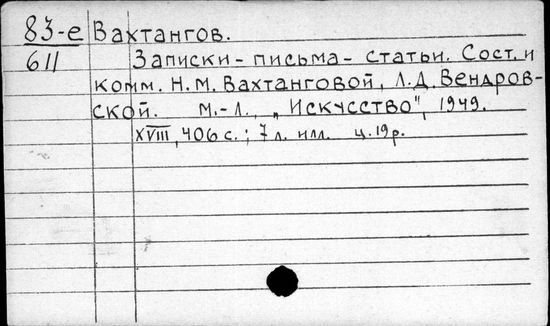 83-е Вахтангов.
611 Записки - письма - статьи. Сост. и
комм. Н.М. Вахтанговой, Л.Д. Вендров-
ской. М.-Л., „Искусство", 1949.
XVIII, 406 с.; 7 л. илл. ц. 19 р.